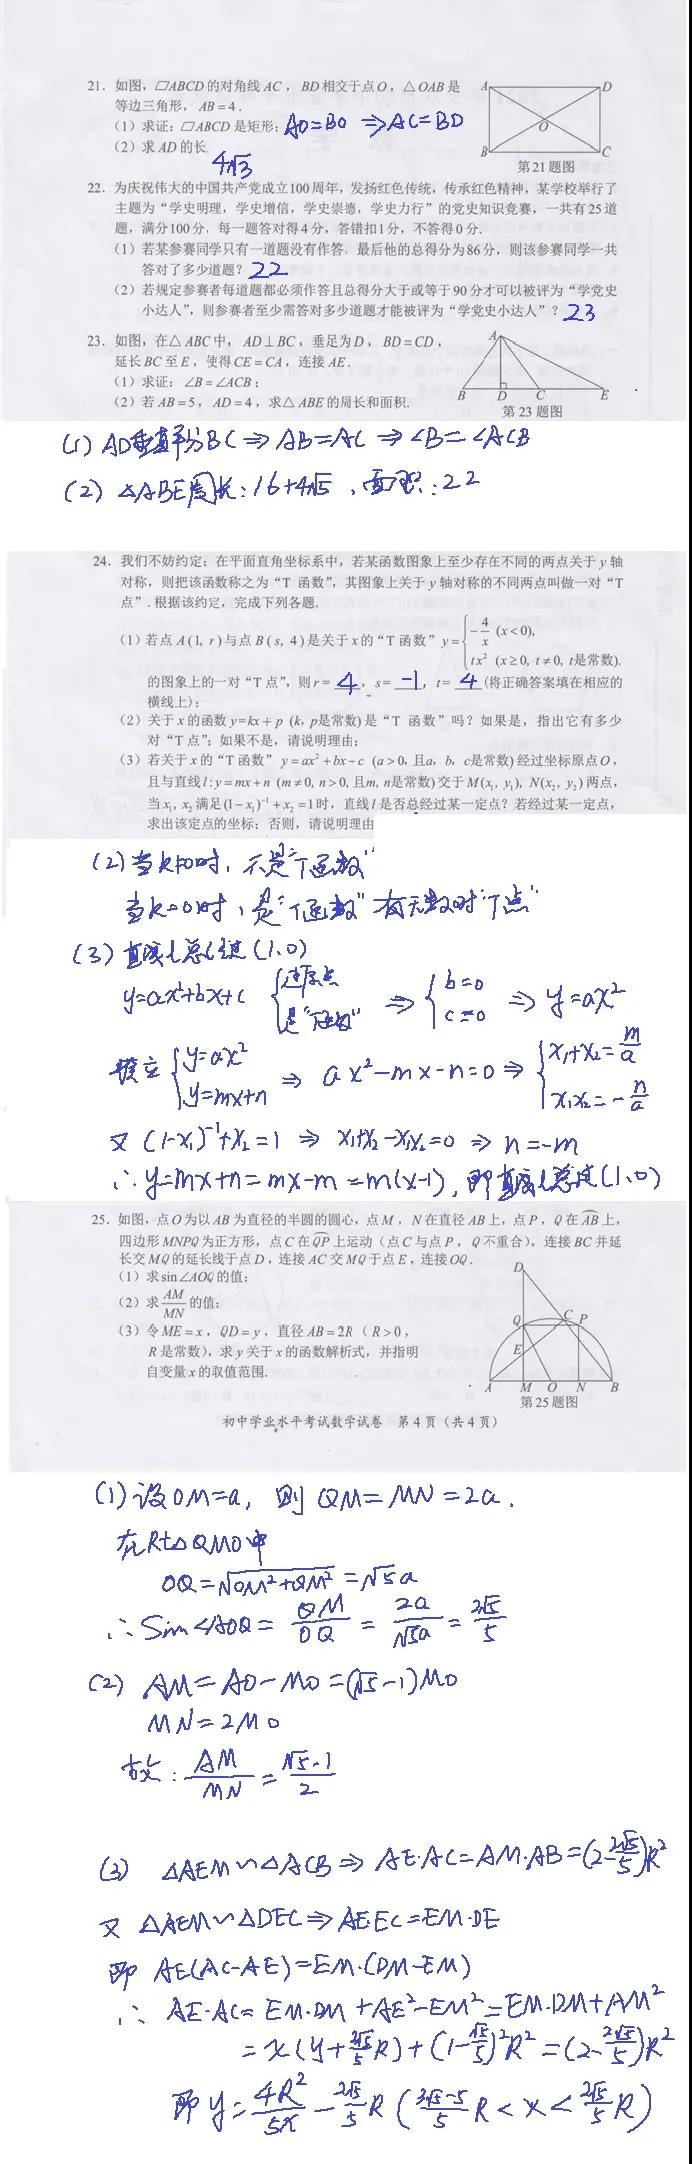 21. 如图，▱ABCD的对角线AC，BD相交于点O，△OAB是
等边三角形，AB=4.
(1) 求证：▱ABCD是矩形；AO=BO ⇒AC=BD
(2) 求AD的长.
4√3
A
D
O
B
C
第21题图
22. 为庆祝伟大的中国共产党成立100周年，发扬红色传统，传承红色精神，某学校举行了
主题为“学史明理，学史增信，学史崇德，学史力行”的党史知识竞赛，一共有25道
题，满分100分，每一题答对得4分，答错扣1分，不答得0分.
(1) 若某参赛同学只有一道题没有作答，最后他的总得分为86分，则该参赛同学一共
答对了多少道题？22
(2) 若规定参赛者每道题都必须作答且总得分大于或等于90分才可以被评为“学党史
小达人”，则参赛者至少需答对多少道题才能被评为“学党史小达人”？23
23. 如图，在△ABC中，AD⊥BC，垂足为D，BD=CD，
延长BC至E，使得CE=CA，连接AE.
(1) 求证：∠B=∠ACB；
(2) 若AB=5，AD=4，求△ABE的周长和面积.
A
B
D
C
E
第23题图
(1) AD垂直平分BC⇒AB=AC⇒∠B=∠ACB
(2) △ABE周长：16+4√5，面积：22
24. 我们不妨约定：在平面直角坐标系中，若某函数图象上至少存在不同的两点关于y轴
对称，则把该函数称之为“T 函数”，其图象上关于y轴对称的不同两点叫做一对“T
点”.根据该约定，完成下列各题.
(1) 若点A(1, r)与点B(s, 4)是关于x的“T 函数” y={ -4/x (x<0),
tx² (x≥0, t≠0, t是常数).
的图象上的一对“T点”，则r= 4 ，s= -1 ，t= 4 (将正确答案填在相应的
横线上)；
(2) 关于x的函数y=kx+p (k, p是常数)是“T 函数”吗？如果是，指出它有多少
对“T点”；如果不是，请说明理由；
(3) 若关于x的“T函数” y=ax²+bx+c (a>0, 且a，b，c是常数)经过坐标原点O，
且与直线l:y=mx+n (m≠0, n>0, 且m, n是常数)交于M(x₁, y₁)，N(x₂, y₂)两点，
当x₁, x₂满足(1-x₁)⁻¹+x₂=1时，直线l是否总经过某一定点？若经过某一定点，
求出该定点的坐标；否则，请说明理由
(2) 当k≠0时，不是“T函数”
当k=0时，是“T函数”有无数对“T点”
(3) 直线l总经过(1,0)
y=ax²+bx+c { 过原点 是“T函数” ⇒ { b=0 c=0 ⇒ y=ax²
联立 { y=ax² y=mx+n ⇒ ax²-mx-n=0 ⇒ { x₁+x₂=m/a x₁x₂=-n/a
又 (1-x₁)⁻¹+x₂=1 ⇒ x₁+x₂-x₁x₂=0 ⇒ n=-m
∴ y=mx+n=mx-m=m(x-1)，即直线l总过(1,0)
25. 如图，点O为以AB为直径的半圆的圆心，点M，N在直径AB上，点P，Q在AB上，
四边形MNPQ为正方形，点C在QP上运动（点C与点P，Q不重合），连接BC并延
长交MQ的延长线于点D，连接AC交MQ于点E，连接OQ.
(1) 求sin∠AOQ的值；
(2) 求AM/MN的值；
(3) 令ME=x，QD=y，直径AB=2R（R>0，
R是常数），求y关于x的函数解析式，并指明
自变量x的取值范围.
D
Q
C
P
E
A
M
O
N
B
第25题图
初中学业水平考试数学试卷 第4页（共4页）
(1) 设OM=a，则QM=MN=2a.
在Rt△QMO中
OQ=√(OM²+QM²)=√5a
∴ Sin∠AOQ=QM/OQ=2a/√5a=2√5/5
(2) AM=AO-MO=(√5-1)MO
MN=2MO
故：AM/MN=(√5-1)/2
(3) △AEM∽△ACB⇒AE·AC=AM·AB=(2-2√5/5)R²
又 △AEM∽△DEC⇒AE·EC=EM·DE
即 AE(AC-AE)=EM·(DM-EM)
∴ AE·AC=EM·DM+AE²-EM²=EM·DM+AM²
=x(y+2√5/5R)+(1-√5/5)²R²=(2-2√5/5)R²
即y=4R²/5x-2√5/5R(3√5-5/5R<x<2√5/5R)